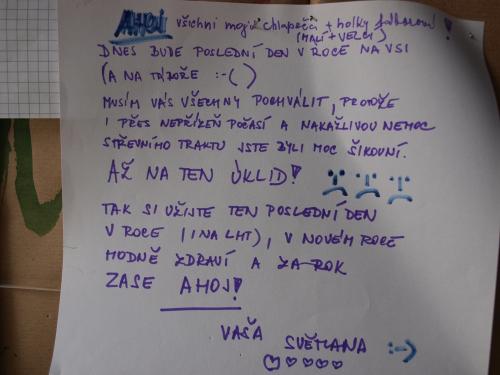 AHOJ všichni moji chlapečci + holky táborový!
(MALÍ + VELCÍ)
DNES BUDE POSLEDNÍ DEN V ROCE NA VSI
(A NA TÁBOŘE :-()
MUSÍM VÁS VŠECHNY POCHVÁLIT, PROTOŽE
I PŘES NEPŘÍZEŇ POČASÍ A NAKAŽLIVOU NEMOC
STŘEVNÍHO TRAKTU JSTE BYLI MOC ŠIKOVNÍ.
AŽ NA TEN ÚKLID!
TAK SI UŽIJTE TEN POSLEDNÍ DEN
V ROCE (I NA LMT), V NOVÉM ROCE
HODNĚ ZDRAVÍ A ZA ROK
ZASE AHOJ!
VAŠA
SVĚTLANA :-)